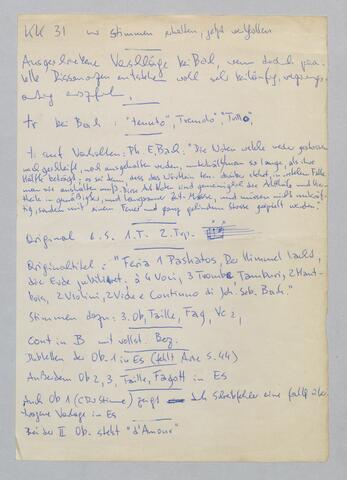 KK 31 nur Stimmen erhalten, jetzt verschollen
Ausgeschriebene Vorschläge bei Bach, wenn dadurch
Dissonanzen entstehen wohl sehr
ausführen.
tr bei Bach: "tenuto", "Tremolo", "Trillo"
t. auf Vorhalten: Ph. E. Bach: "Die Noten welche weder gestossen
noch geschleift, noch ausgehalten werden, unterhält man so lange, als ihre
Hälfte beträgt; es sei denn, dass das Wörtlein ten: darüber steht, in welchem Falle
man sie aushalten muß. Diese Art Noten sind gemeiniglich die Achttheile und Vier-
theile in gemäßigter und langsamer Zeit-Maasse, und müssen nicht unkräf-
tig, sondern mit einem Feuer und ganz gelindem Stosse gespielt werden."
Original c.f. 1.T. 2.
Originaltitel: "Feria 1 Paschatos, Der Himmel lacht,
die Erde jubiliret, à 4 Voci, 3 Trombe, Tamburi, 2 Haut-
bois, 2 Violini, 2 Viole e Continuo di Joh. Seb. Bach."
Stimmen dazu: 3. Ob, Taille, Fag, Vc 2,
Cont in B mit vollst. Bez.
Dubletten der Ob. 1 in Es (fehlt Arie S. 44)
Außerdem Ob 2, 3, Taille, Fagott in Es
Auch Ob 1 zeigt Schreibfehler eine
Vorlage in Es
Bei der II Ob. steht "d'Amour"